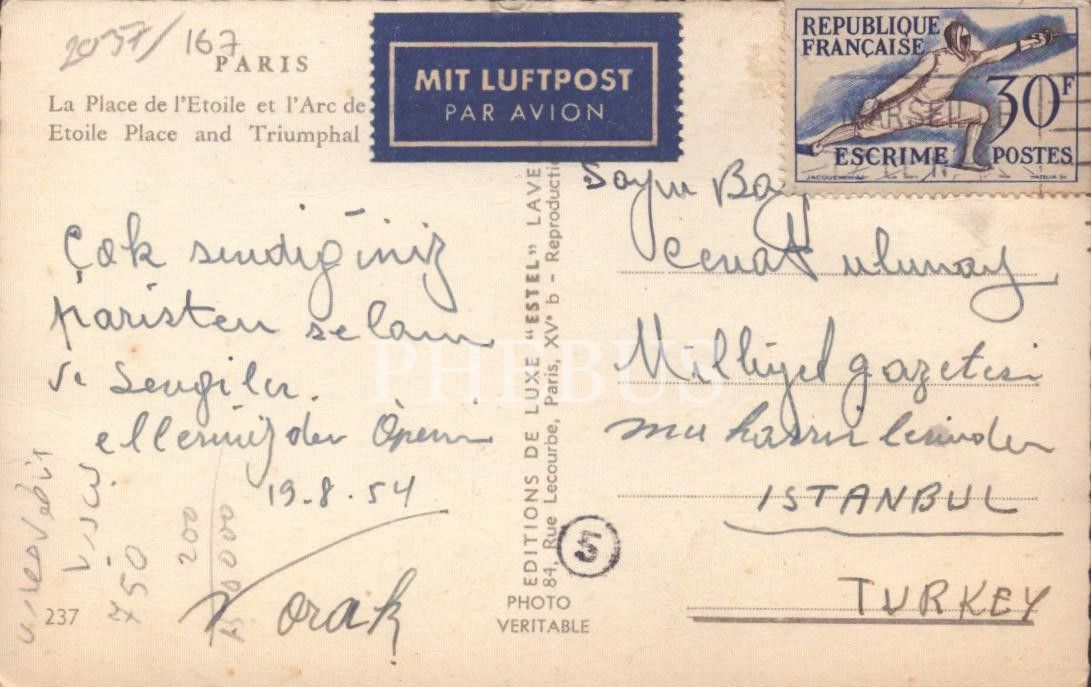 2037/ 167
PARIS
La Place de l'Etoile et l'Arc de
Etoile Place and Triumphal
MIT LUFTPOST
PAR AVION
REPUBLIQUE
FRANÇAISE
30F
MARSEIL
ESCRIME POSTES
JACQUEMIN
Çok sevdiğiniz
paristen selam
ve sevgiler.
ellerinizden Öperim
19.8.54
orak
Sayın Bay
Cevat ulunay
Milliyet gazetesi
muharrirlerinden
ISTANBUL
TURKEY
EDITIONS DE LUXE "ESTEL" LAVE
84, Rue Lecourbe, Paris, XVe b - Reproductio
5
PHOTO
VERITABLE
237
750
200
PHEBUS